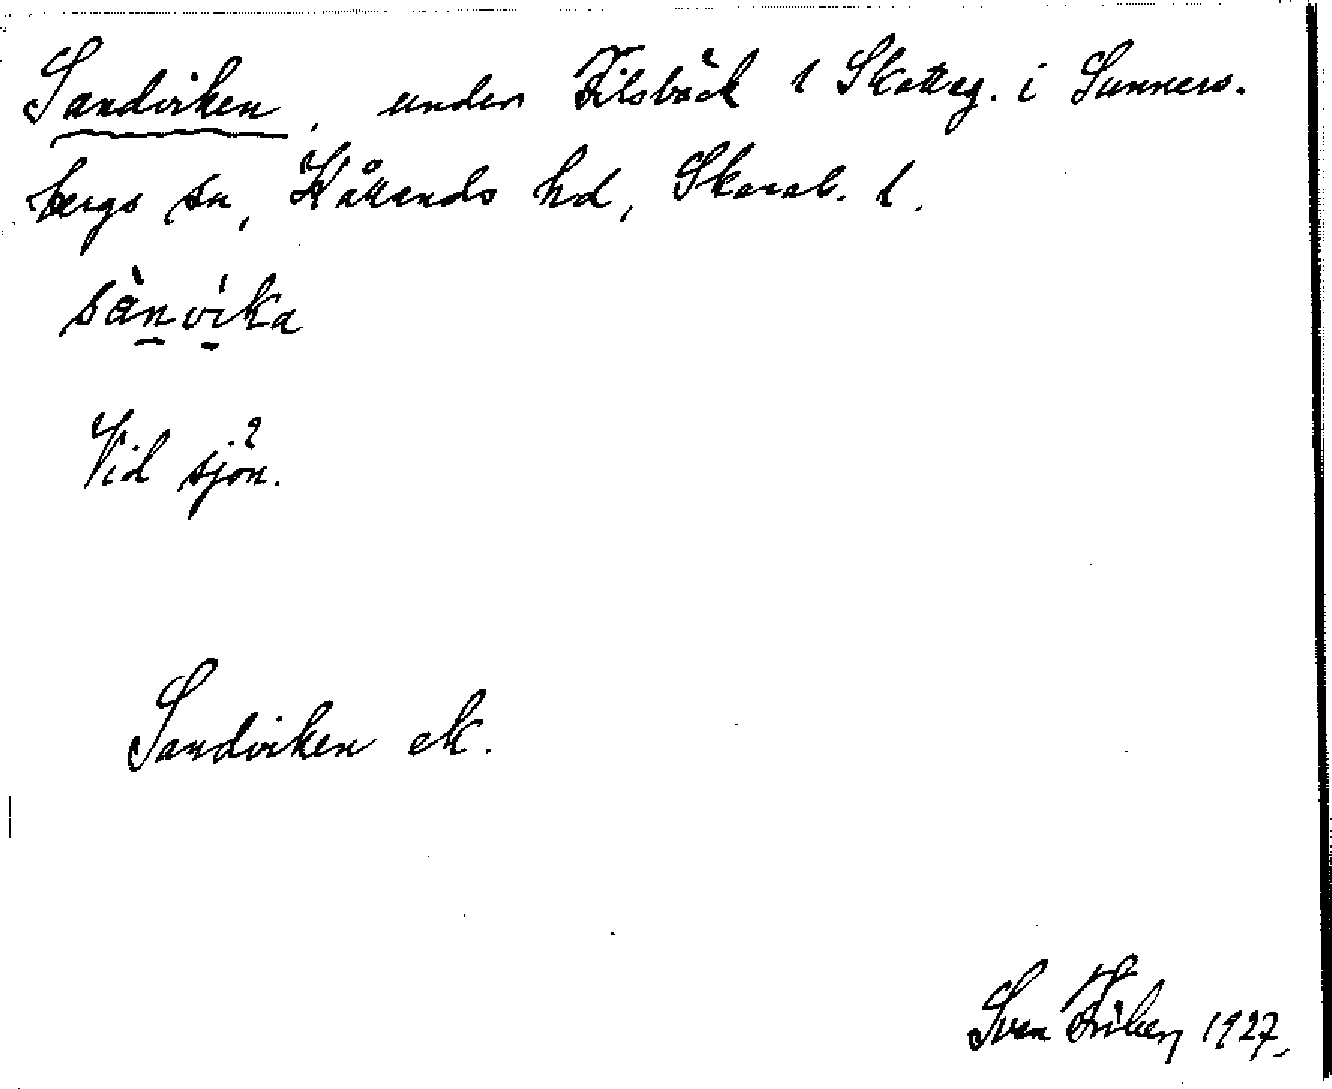 Sandviken, under Filsbäck 1 Skatteg. i Sunners-
bergs sn, Kållands hd, Skarab. l.
sànvíka
Vid sjön.
Sandviken ek.
Sven 1927.